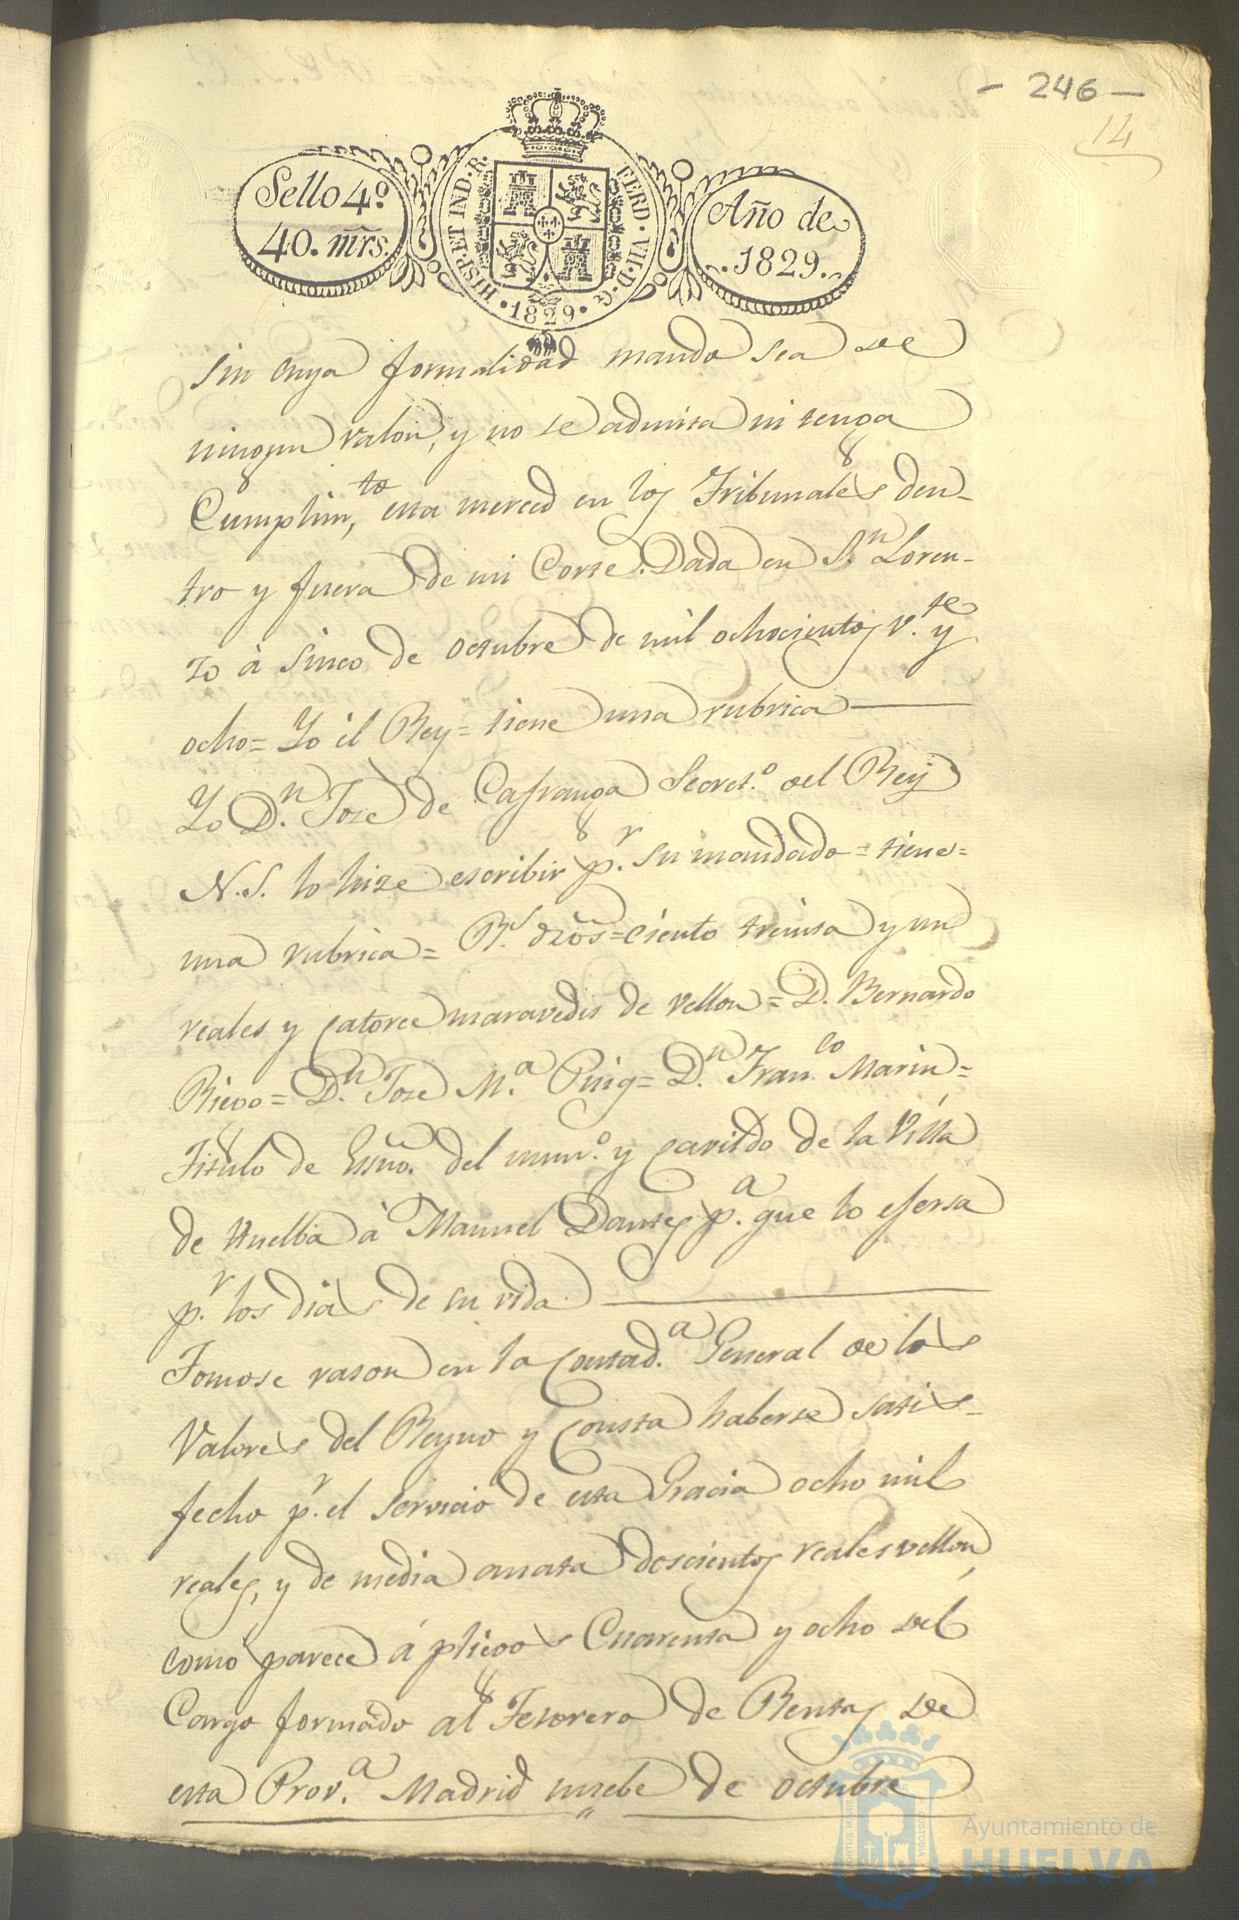 - 246 -
14
Sello 4º
40. mrs.
HISP. ET IND. R.
FERD. VII. D. G.
1829
Año de
1829.
sin cuya formalidad mando sea de
ningun valor, y no se admita ni tenga
Cumplim,to esta merced en los Tribunales den-
tro y fuera de mi Corte. Dada en S.n Loren-
zo à sinco de octubre de mil ochocientos v.te y
ocho = Yo il Rey = tiene una rubrica
Yo D.n Jose de Cafranga Secret.o del Rey
N. S. lo hize escribir p.r su mandado = tiene =
una rubrica = R.s dros = ciento treinta y un
reales y catorce maravedis de vellon = D. Bernardo
Riego = D.n Jose M.a Puig = D.n Fran.co Marin =
Titulo de Essno. del num.o y cavildo de la Villa
de Huelba à Manuel Dantes p.a que lo ejersa
p.r los dias de su vida
Tomose rason en la Contad.a General de los
Valores del Reyno y Consta haberse satis-
fecho p.r el servicio de esta Gracia ocho mil
reales, y de media annata doscientos reales vellon,
como parece á pliegos Cuarenta y ocho del
Cargo formado al Tesorero de Rentas de
esta Prov.a Madrid nuebe de octubre
Ayuntamiento de
HUELVA